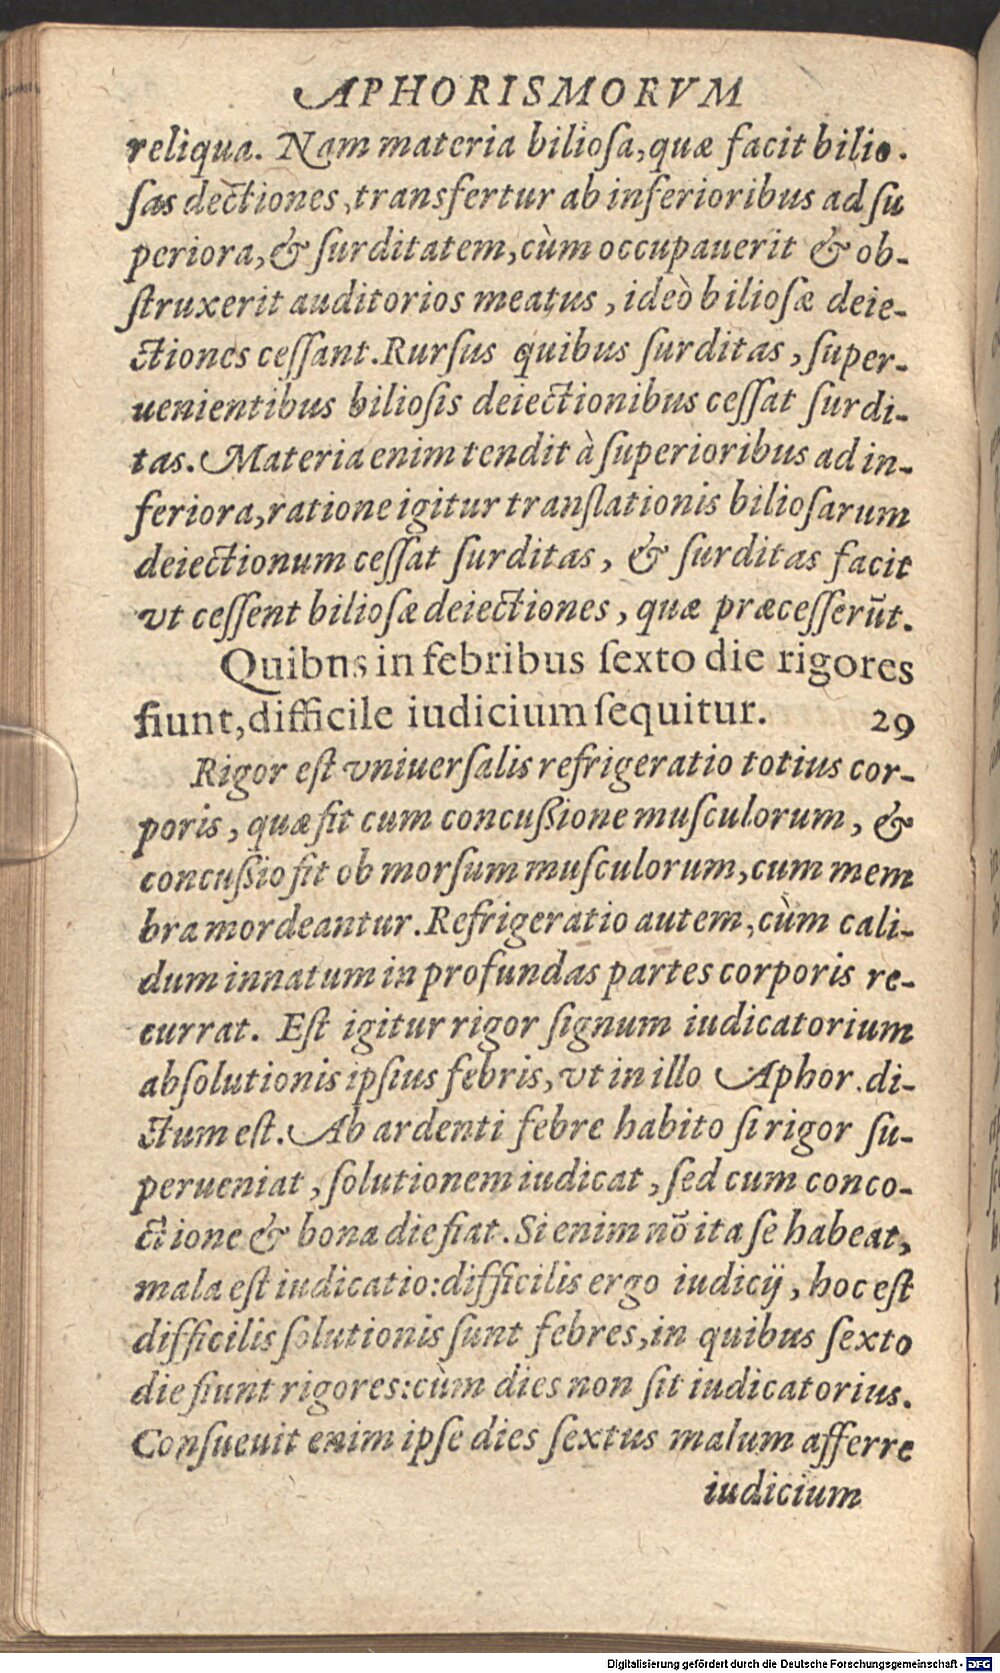 APHORISMORVM
reliqua. Nam materia bilioſa, quæ facit bilio-
ſas dectiones, transfertur ab inferioribus ad ſu
periora, & ſurditatem, cùm occupauerit & ob-
ſtruxerit auditorios meatus, ideò bilioſæ deie-
ctiones ceſſant. Rurſus quibus ſurditas, ſuper-
uenientibus bilioſis deiectionibus ceſſat ſurdi-
tas. Materia enim tendit à ſuperioribus ad in-
feriora, ratione igitur tranſlationis bilioſarum
deiectionum ceſſat ſurditas, & ſurditas facit
vt ceſſent bilioſæ deiectiones, quæ præceſſerũt.
Quibns in febribus ſexto die rigores
fiunt, difficile iudicium ſequitur. 29
Rigor eſt vniuerſalis refrigeratio totius cor-
poris, quæ fit cum concuſsione muſculorum, &
concuſsio fit ob morſum muſculorum, cum mem
bra mordeantur. Refrigeratio autem, cùm cali-
dum innatum in profundas partes corporis re-
currat. Eſt igitur rigor ſignum iudicatorium
abſolutionis ipſius febris, vt in illo Aphor. di-
ctum eſt. Ab ardenti febre habito ſi rigor ſu-
perueniat, ſolutionem iudicat, ſed cum conco-
ctione & bona die fiat. Si enim nõ ita ſe habeat,
mala eſt iudicatio: difficilis ergo iudicij, hoc eſt
difficilis ſolutionis ſunt febres, in quibus ſexto
die fiunt rigores: cùm dies non ſit iudicatorius.
Conſueuit enim ipſe dies ſextus malum afferre
iudicium
Digitalisierung gefördert durch die Deutsche Forschungsgemeinschaft - DFG